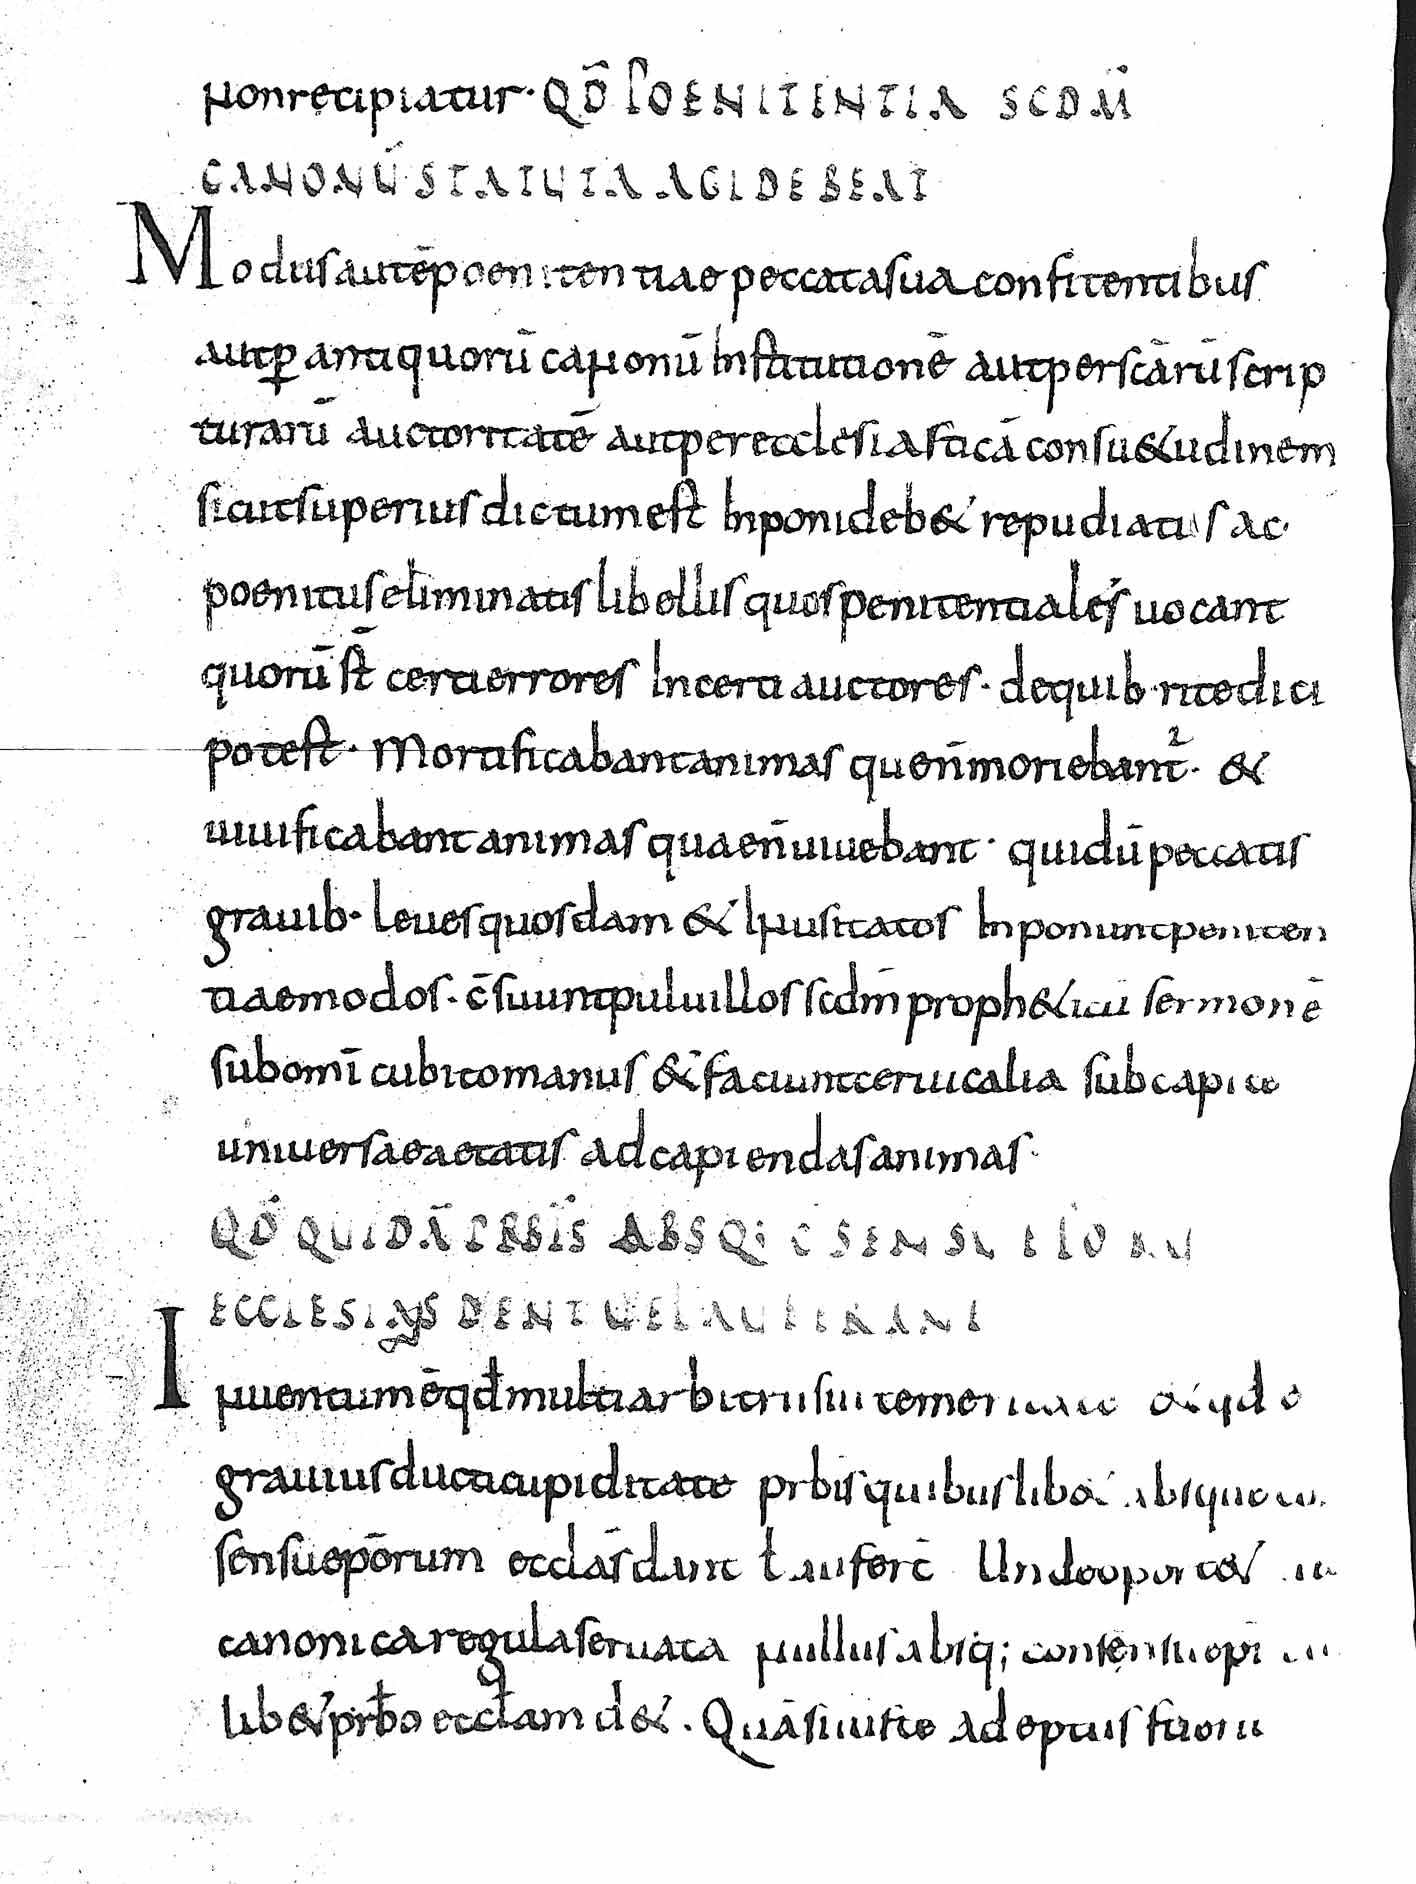 non recipiatur · QD̄ POENITENTIA SCDM̄
CANONŪ STATUTA AGI DEBEAT
Modus autē poenitentiae peccata sua confitentibus
aut ꝑ antiquorū canonū Institutionē aut per scārū scrip
turarū auctoritatē aut per ecclesiasticā consu&udinem
sicut superius dictum est Inponi deb& repudiatis ac
poenitus eliminatis libellis quos penitentiales uocant
quorū st̄ certi errores Incerti auctores · de quib· rite dici
potest · Mortificabant animas que n̄ moriebant̄ · &
uiuificabant animas quae n̄ uiuebant · qui dū peccatis
grauib· leues quosdam & Inusitatos Inponunt peniten
tiae modos · c̄suunt puluillos scdm̄ proph&icū sermonē
sub omī cubito manus & faciunt ceruicalia sub capite
uniuersae aetatis ad capiendas animas ·
QD̄ QUIDĀ PRBĪS ABSQ; C̄SENSU EPORU
ECCLESIAS DENT UEL AUFERANT
Inuentum ē qđ multi arbitrii sui temeritate & qđ ē
grauius ducti cupiditate prbis quibuslib& absque con
sensu epōrum ecclās dant ł auferē Unde oport&
canonica regula seruata nullus absq; consensu epi
lib& prbo ecclam d& . Quā si iuste adeptus fuerit